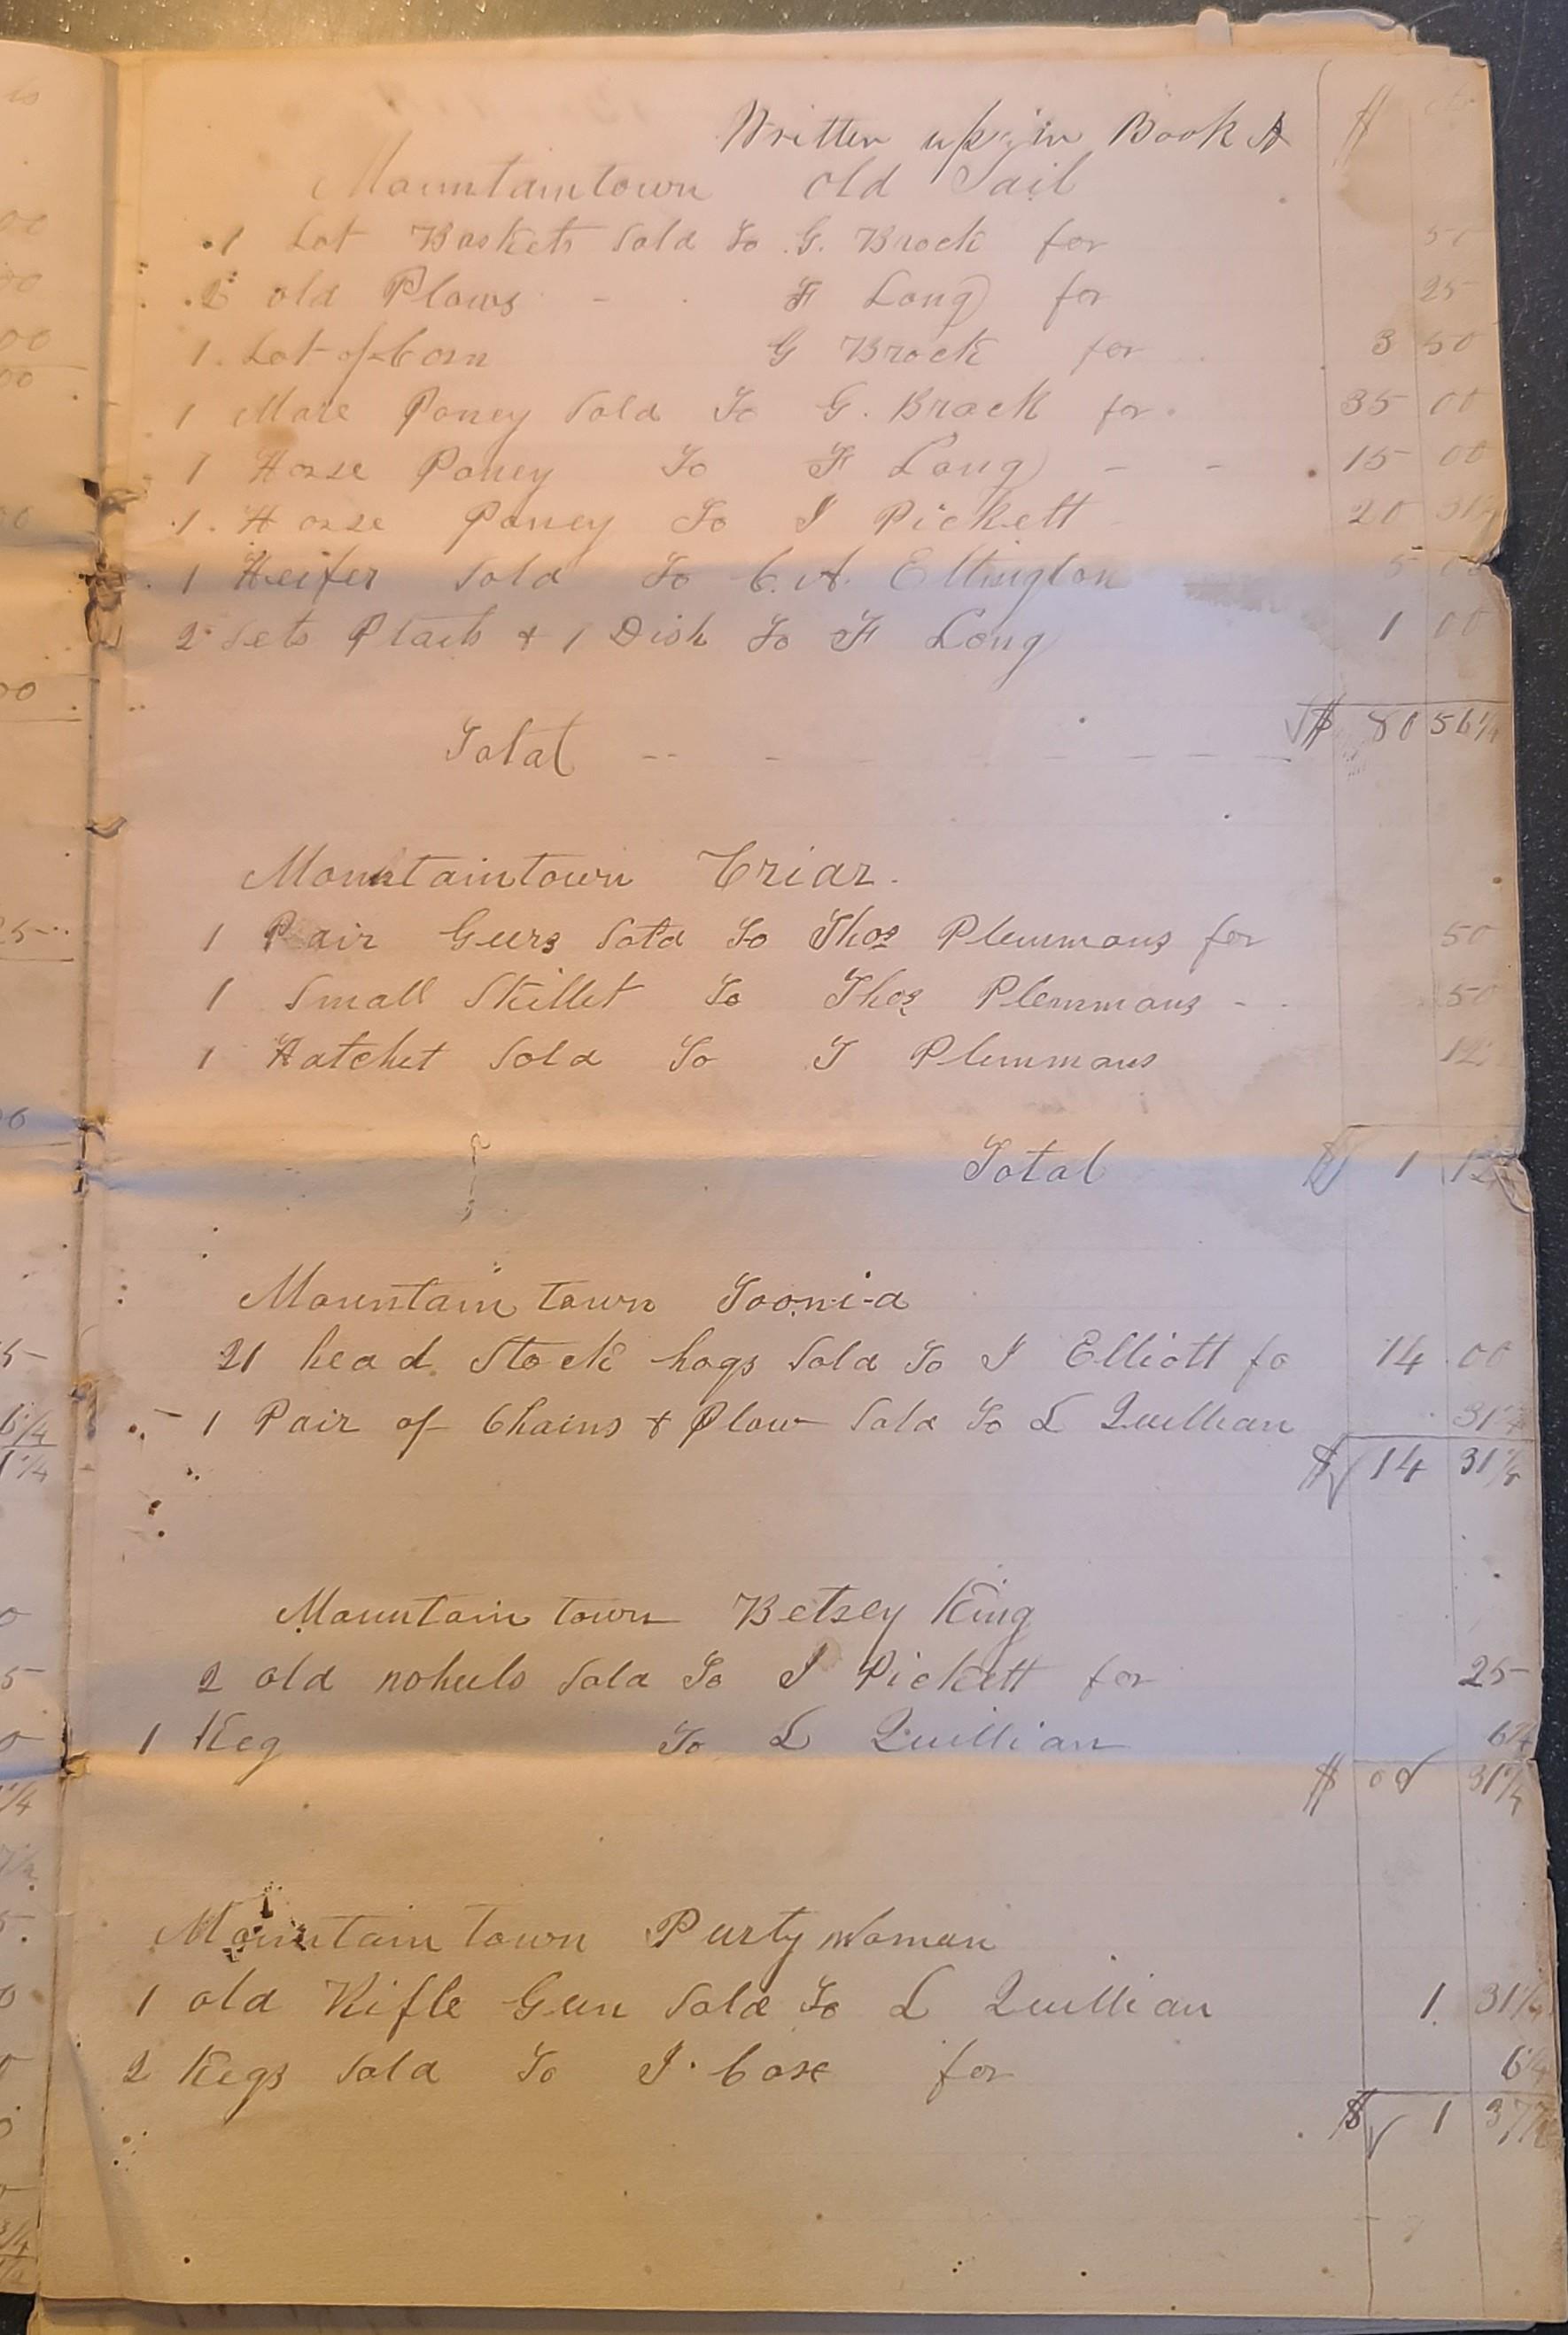 Written up in Book A
$
Mountaintown Old Tail
1 Lot Baskets Sold To G. Brock for 50
2 old Plows - F Long for 25
1. Lot of Corn G Brock for 3 50
1 Mare Poney Sold To G. Brock for 35 00
1 Horse Poney To F Long - - 15 00
1. Horse Poney To I Pickett 20 31¼
1 Heifer Sold To C. A. Ellington 5 00
2 Sets Plaits & 1 Dish To F Long 1 00
Total - - - - - - - $ 80 56¼
Mountaintown Criar.
1 Pair Geers Sold To Thos Plemmons for 50
1 Small Skillet To Thos Plemmons - - 50
1 Hatchet Sold To T Plemmons 12
Total $ 1 12
Mountain town Toonia
21 head Stock hogs Sold To I Elliott fo 14 00
1 Pair of Chains & Plow Sold To L Quillian 31¼
$ 14 31¼
Mountain town Betsey King
2 old Sold To I Pickett for 25
1 Keg To L Quillian 6¼
$ 00 31¼
Mountain town Purty Woman
1 old Rifle Gun Sold To L Quillian 1 31¼
2 Kegs Sold To I. Cox for 6¼
$ 1 37½